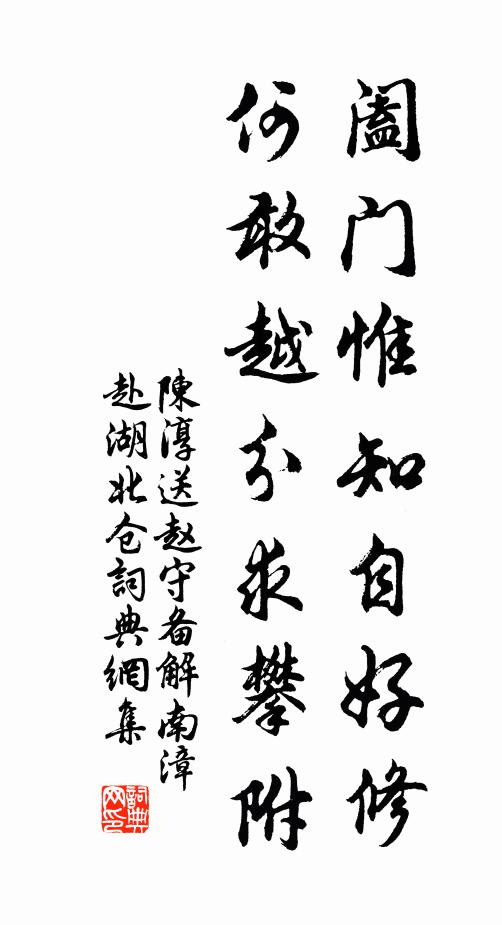 阖门惟知自好修
何敢越分求攀附
陳淳送赵守备解南漳
赴湖北仓詞典網集
詞典网印